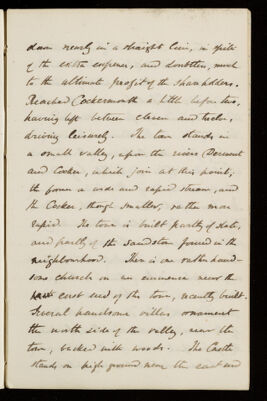 down nearly in a straight line, in spite
of the extra expense, and doubtless, much
to the ultimate profit of the shareholders.
Reached Cockermouth a little before two,
having left between eleven and twelve,
driving leisurely. The town stands in
a small valley, upon the rivers Derwent
and Cocker, which join at this point;
the former a wide and rapid stream, and
the Cocker, though smaller, rather more
rapid. The town is built partly of slate,
and partly of the sandstone found in the
neighbourhood. There is one rather hand-
some church on an eminence near the
east end of the town, recently built.
Several handsome villas ornament
the north side of the valley, near the
town, backed with woods. The Castle
stands on high ground near the east end